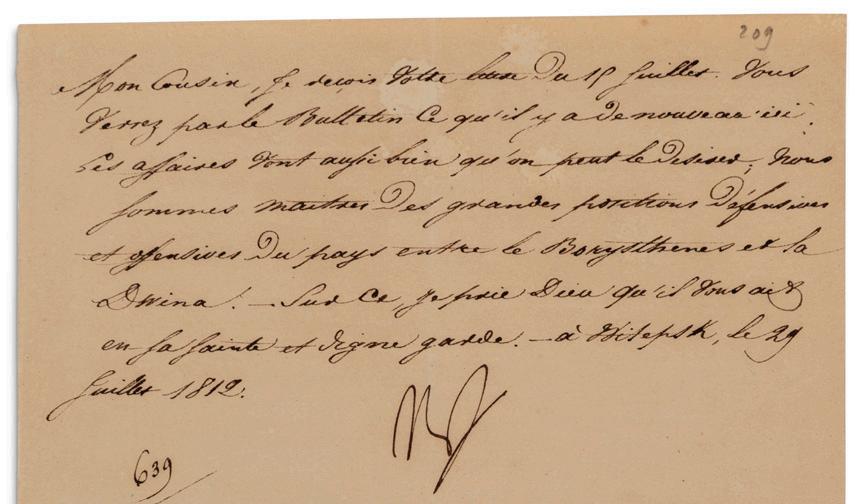 209
Mon Cousin, Je reçois votre lettre du 15 Juillet. Vous
verrez par le Bulletin ce qu'il y a de nouveau ici.
Les affaires vont aussi bien qu'on peut le desirer; nous
sommes maitres des grandes positions défensives
et offensives du pays entre le Borysthenes et la
Dwina. _ Sur ce, Je prie Dieu qu'il vous ait
en sa sainte et digne garde. _ à Witepsk, le 29
Juillet 1812.
639